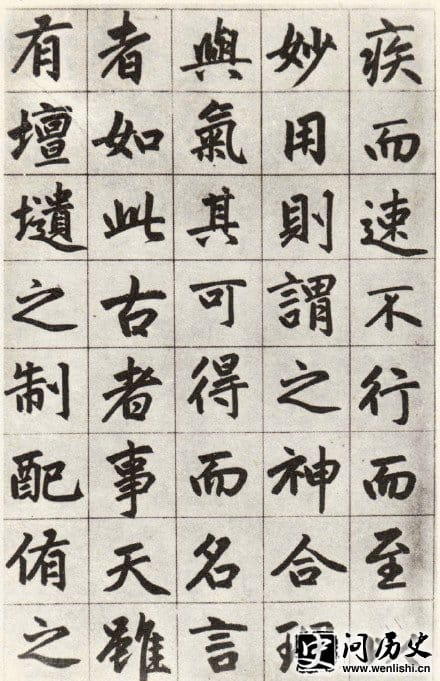 疾而速不行而至
妙用則謂之神合理
與氣其可得而名言
者如此古者事天雖
有壇壝之制配侑之
问历史
www.wenlishi.cn